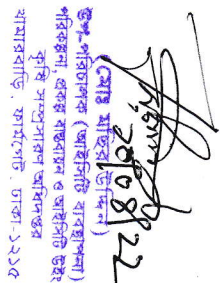 (মোঃ মাহবুব উদ্দিন)
উপ-পরিচালক (আইসিটি ব্যবস্থাপনা)
পরিকল্পনা, প্রকল্প বাস্তবায়ন ও আইসিটি উইং
কৃষি সম্প্রসারণ অধিদপ্তর
খামারবাড়ি, ফার্মগেট, ঢাকা-১২১৫